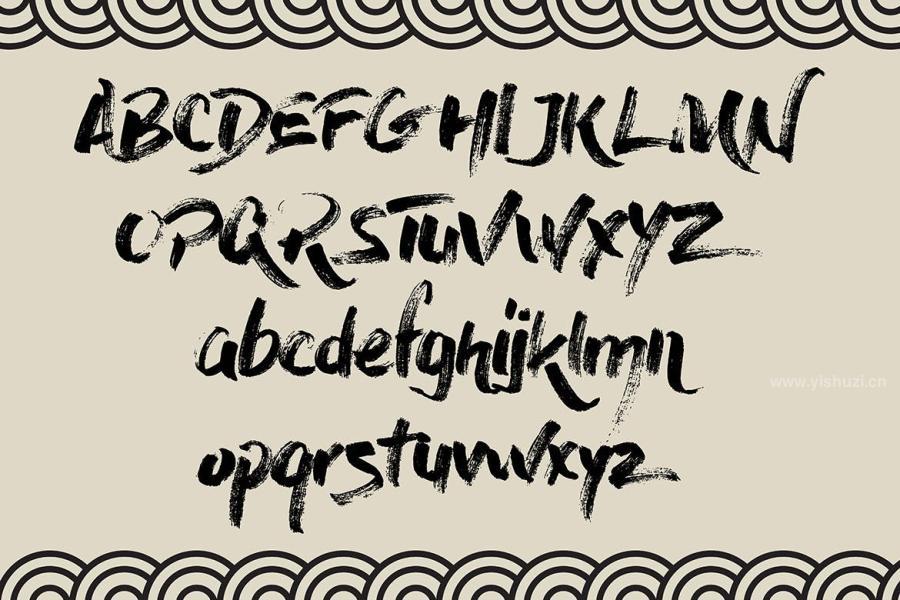 ABCDEFGHIJKLMN
OPQRSTUVWXYZ
abcdefghijklmn
www.yishuzi.cn
opqrstuvwxyz